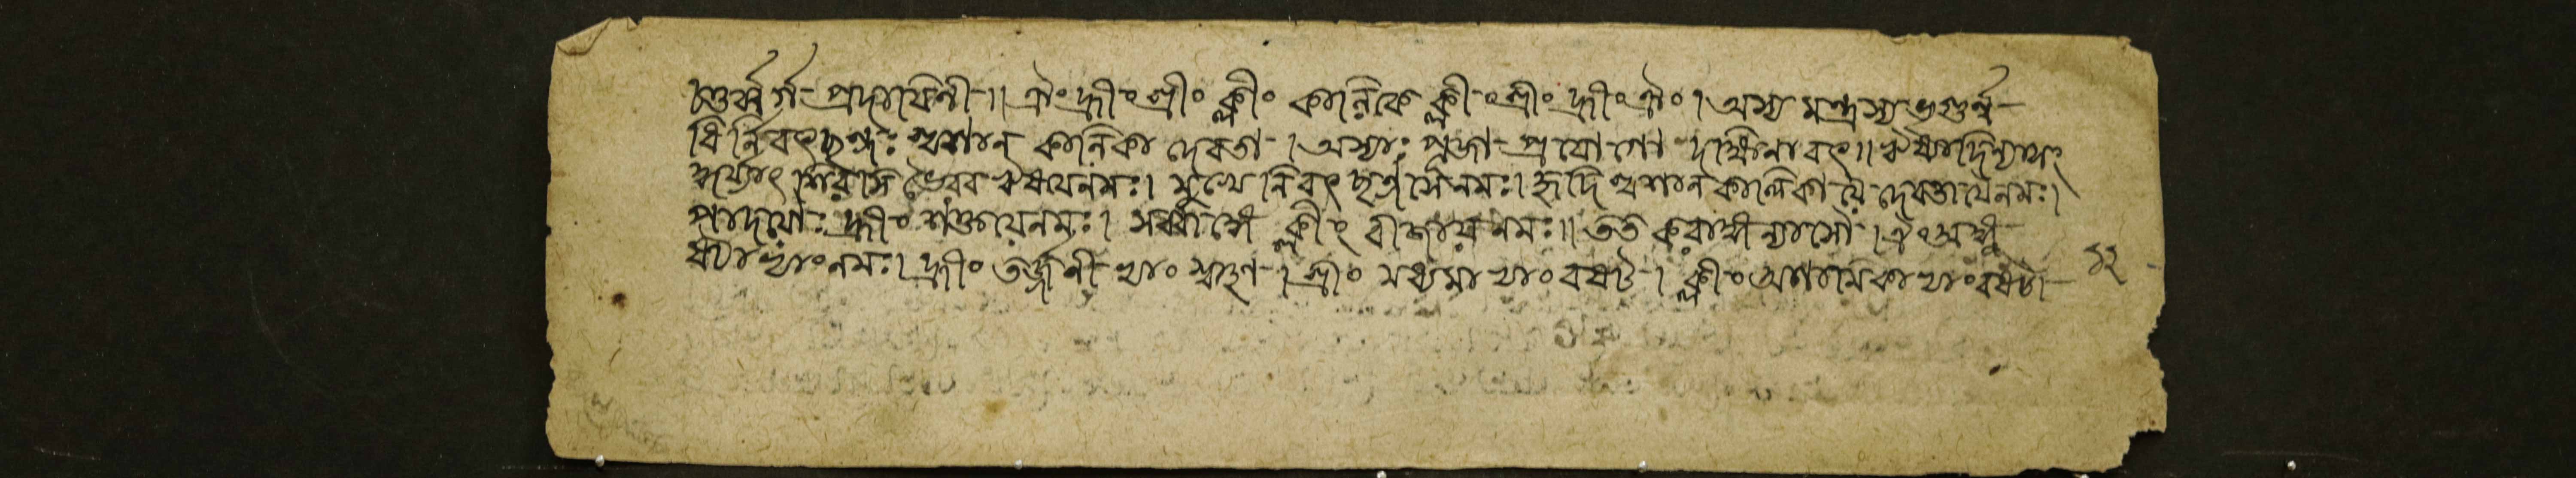 চতুর্ব্বর্গ প্রদায়িনী ॥ ঐং হ্রীং শ্রীং ক্লীং কালিকে ক্লীং শ্রীং হ্রীং ঐং । অস্য মন্ত্রস্য ভৃগুর্ঋ
ষি র্নিবৃৎছন্দঃ শ্মশান কালিকা দেবতা । অস্যাঃ পূজা প্রয়োগো দক্ষিণাবৎ ॥ ঋষ্যাদিন্যাসং
কুর্য্যাৎ শিরসি ভৈরব ঋষয়েনমঃ । মুখে নিবৃৎ ছন্দসেনমঃ । হৃদি শ্মশান কালিকা য়ৈ দেবতায়ৈনমঃ ।
পাদয়োঃ হ্রীং শক্তয়েনমঃ । সর্ব্বাঙ্গে ক্লীং বীজায়নমঃ ॥ তত করাঙ্গন্যাসৌ । ঐং অঙ্গু
ষ্ঠাভ্যাংনমঃ । হ্রীং তর্জ্জনীভ্যাং স্বাহা । শ্রীং মধ্যমাভ্যাং বষট । ক্লীং অনামিকাভ্যাং বষট